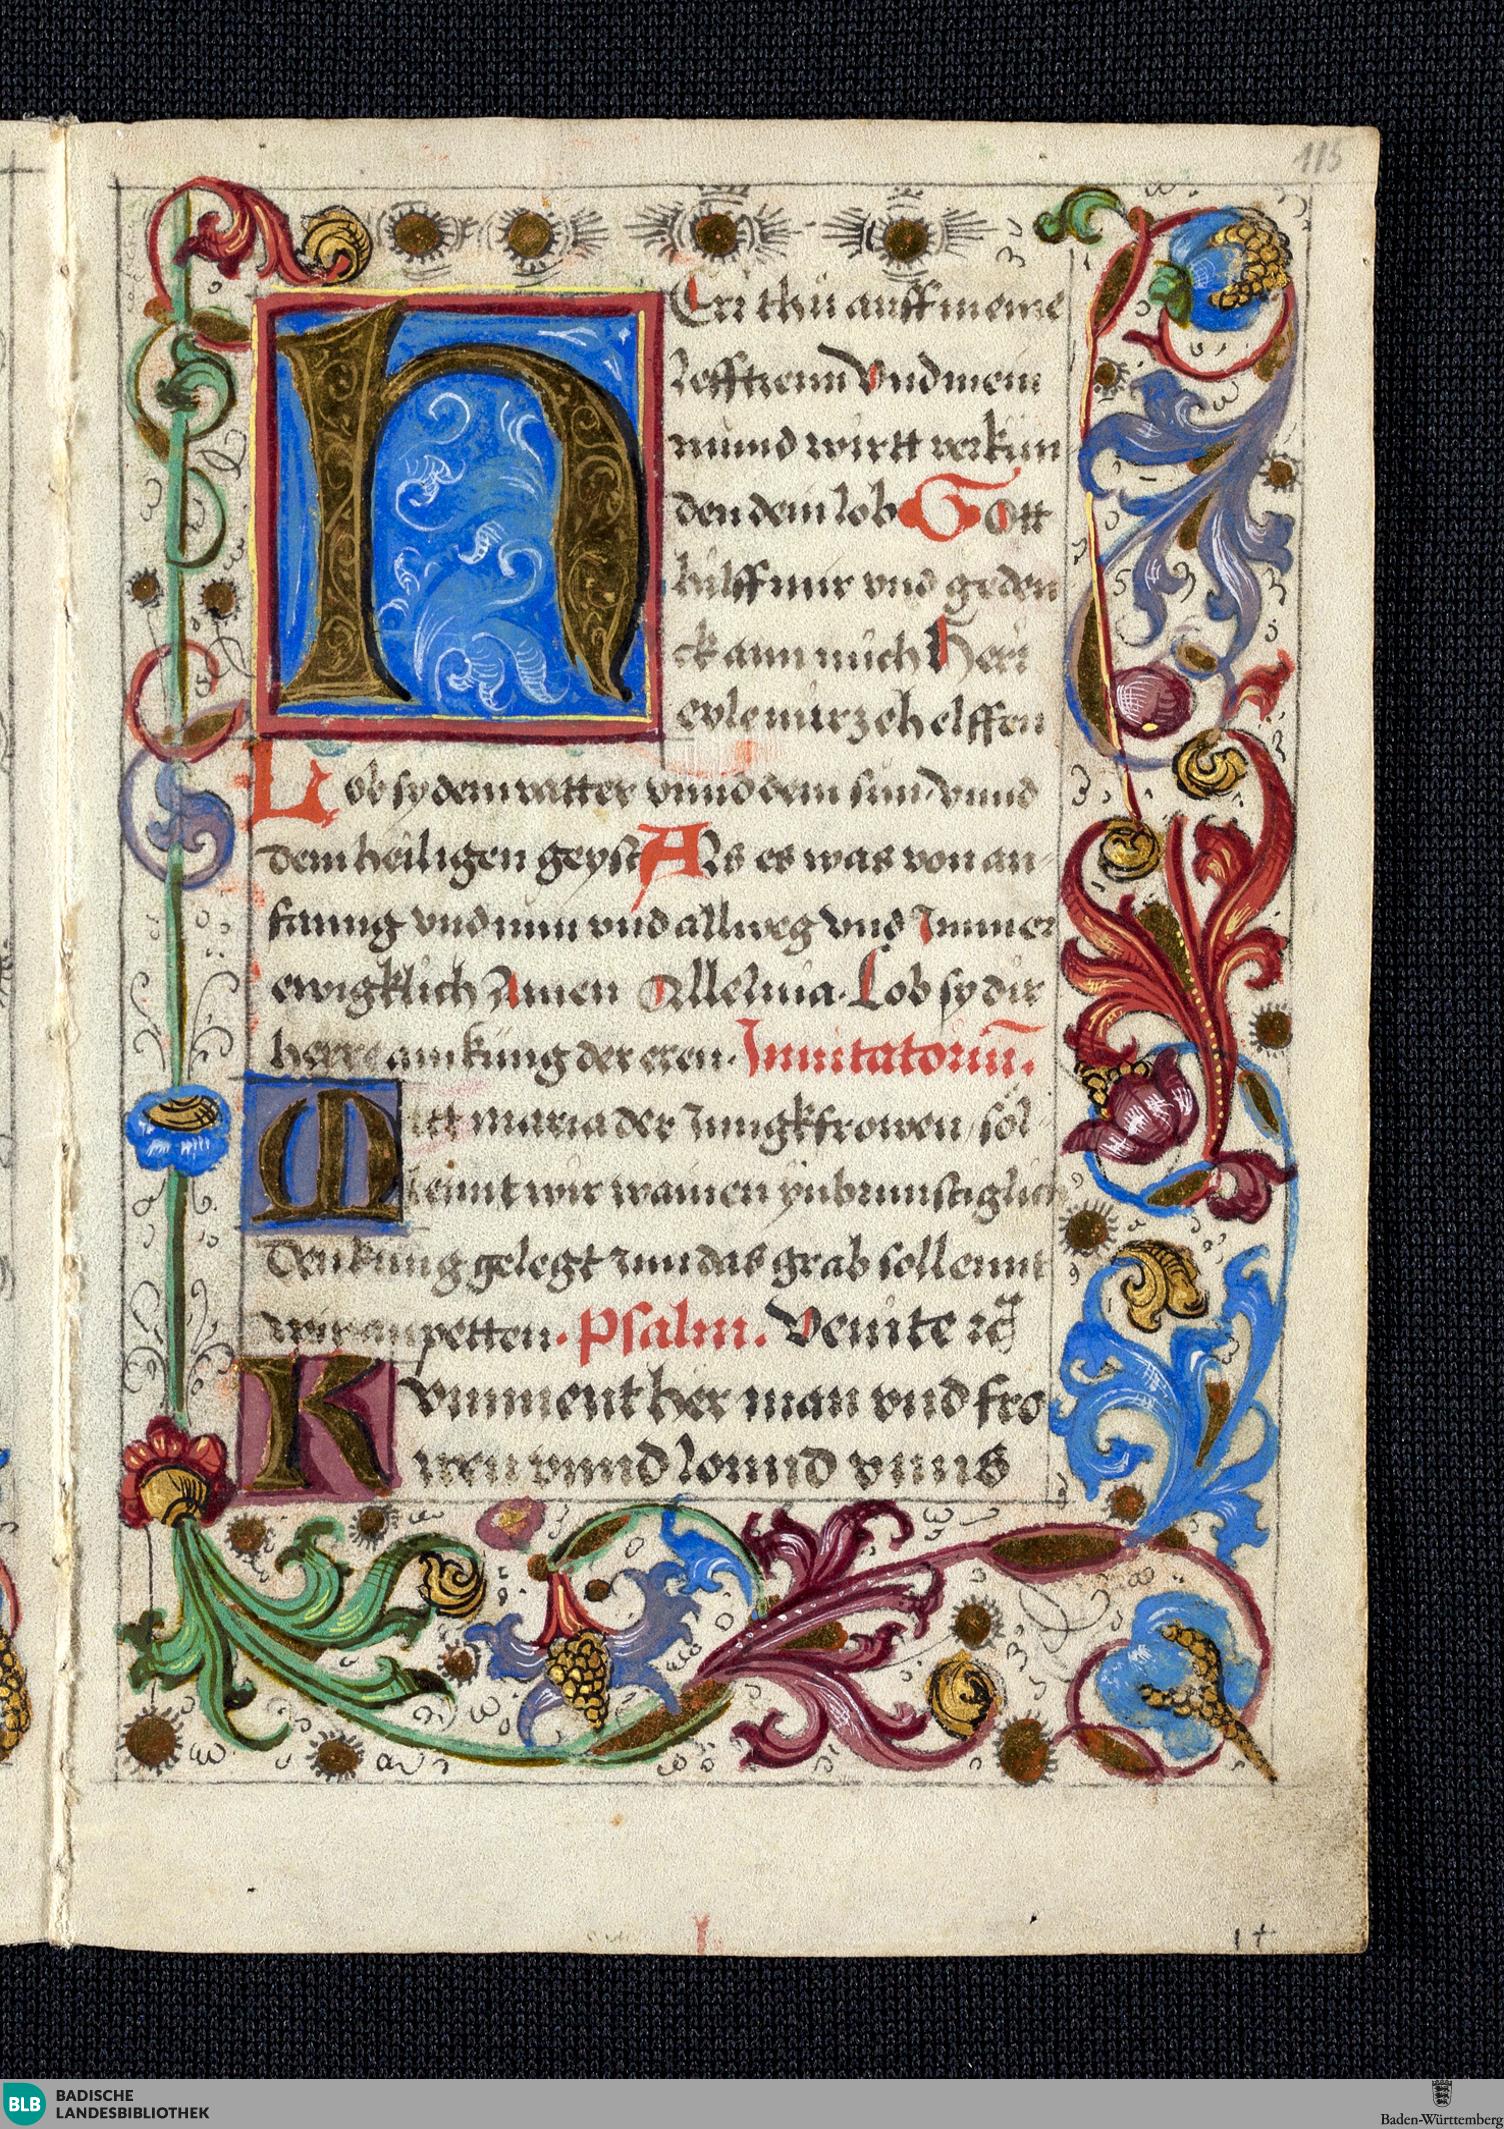 115
HErr thu auff meine
lefftzenn Vnd mein
mund wirtt verkün
den dein lob Gott
hilff mir vnd geden
ck ann mich Herr
eyle mir ze helffen
Lob sy dem vatter vnnd dem sun vnnd
dem heiligen geyst Als es was von an-
fanng vnd nun vnd allweg vnd Immer
ewigklich Amen Alleluia. Lob sy dir
herre ain küng der eren. Inuitatoriu̅.
Mitt maria der Jungkfrowen söl-
lennt wir wainen ynbrünstiglich
Den küng gelegt inn das grab sollennt
wir anpetten. Psalm. Venite
Kummennt her man vnd fro
wen vnnd lonnd vnns
BLB BADISCHE
LANDESBIBLIOTHEK
Baden-Württemberg